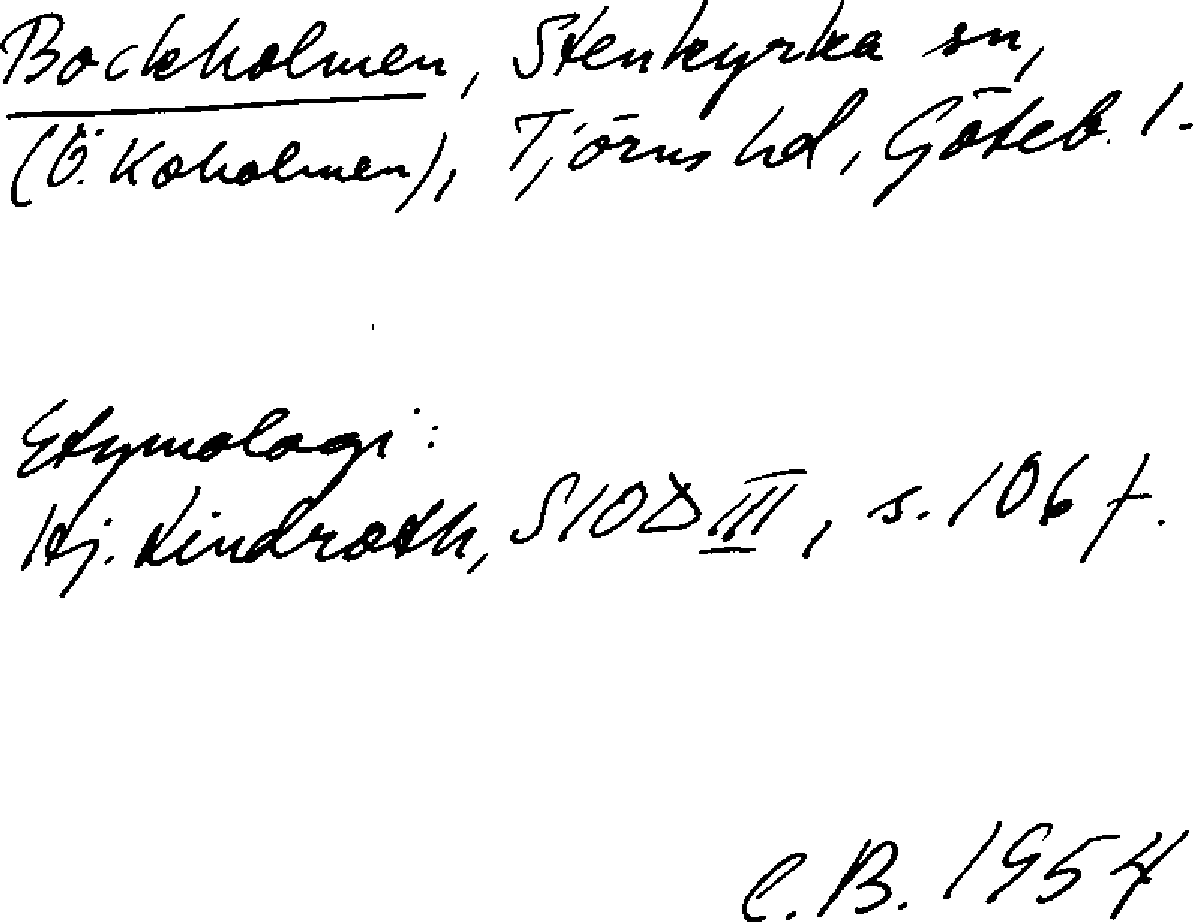 Bockholmen, Stenkyrka sn,
(Ö. Koholmen), Tjörns hd, Göteb. l.
Etymologi:
Hj. Lindroth, SIOD III, s. 106 f.
C.B. 1954